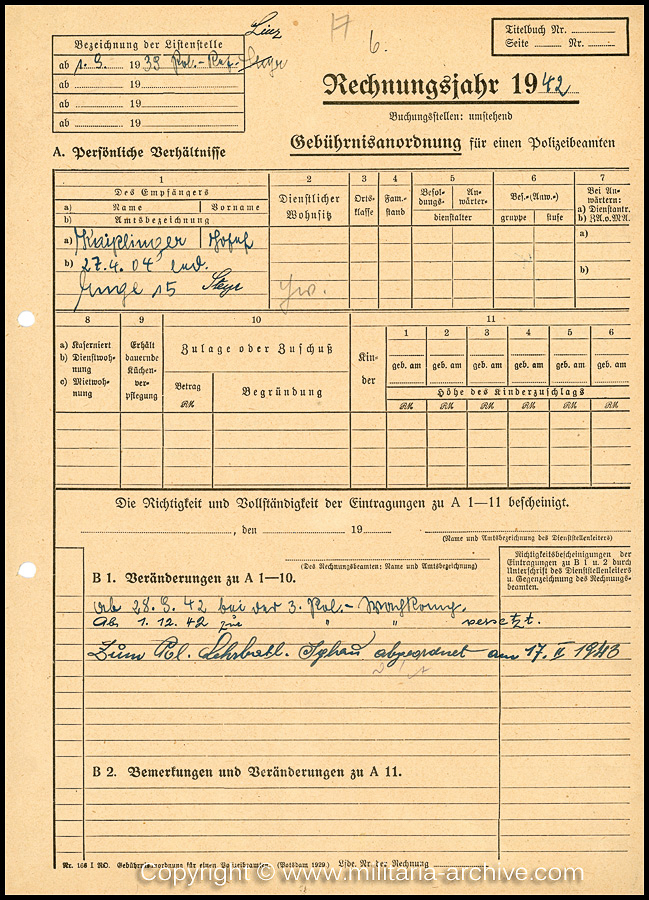 Linz
17
6.
Titelbuch Nr.
Seite Nr.
Bezeichnung der Listenstelle
ab 1.9. 1939 Pol.-Ref. Steyr
ab 19
ab 19
ab 19
Rechnungsjahr 1942
Buchungsstellen: umstehend
Gebührnisanordnung für einen Polizeibeamten
A. Persönliche Verhältnisse
1
Des Empfängers
a) Name Vorname
b) Amtsbezeichnung
2
Dienstlicher Wohnsitz
3
Ortsklasse
4
Fam.stand
5
Besoldungs- Anwärter-
dienstalter
6
Bes.-(Anw.-)
gruppe stufe
7
Bei Anwärtern:
a) Dienstantr.
b) Z.A.o.M.A.
a) Josef
b) 27.4.04 led.
15 Steyr
a)
b)
8
a) Kaserniert
b) Dienstwohnung
c) Mietwohnung
9
Erhält dauernde Küchenverpflegung
10
Zulage oder Zuschuß
Betrag
RM
Begründung
11
Kinder
1 2 3 4 5 6
geb. am geb. am geb. am geb. am geb. am geb. am
Höhe des Kinderzuschlags
RM RM RM RM RM RM
Die Richtigkeit und Vollständigkeit der Eintragungen zu A 1—11 bescheinigt.
, den 19
(Name und Amtsbezeichnung des Dienststellenleiters)
(Des Rechnungsbeamten: Name und Amtsbezeichnung)
Richtigkeitsbescheinigung der
Eintragungen zu B 1 u. 2 durch
Unterschrift des Dienststellenleiters
u. Gegenzeichnung des Rechnungsbeamten.
B 1. Veränderungen zu A 1—10.
ab 28.9.42 bei der 3. Pol.-Wachkomp.
Ab 1.12.42 zur " " versetzt.
Zum Pol. Lehrbatl. Iglau abgeordnet am 17. II 1943
B 2. Bemerkungen und Veränderungen zu A 11.
Nr. 166 I RO. Gebührnisanordnung für einen Polizeibeamten. (Potsdam 1929.) Lfde. Nr. der Rechnung
Copyright © www.militaria-archive.com